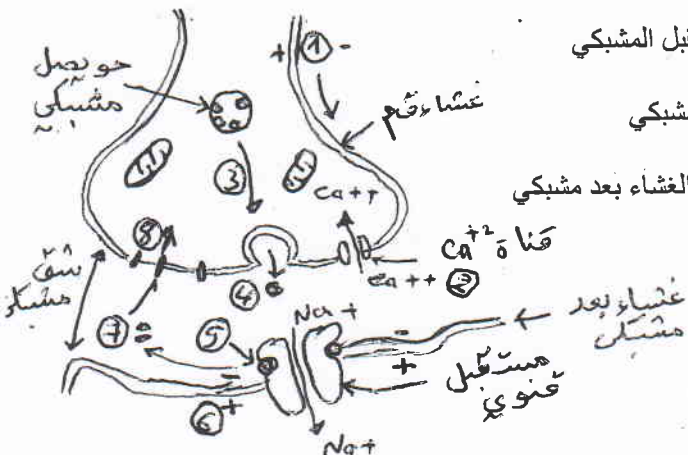 قبل المشبكي
شبكي
الغشاء بعد مشبكي
حويصل
مشبكي
+ ① -
غشاء قم
③
Ca++
قناة Ca+2
Ca++ ②
⑧
شق
④
Na+
⑦
⑤
-
-
غشاء بعد
مشبكي
+
مستقبل
قنوي
⑥ +
Na+